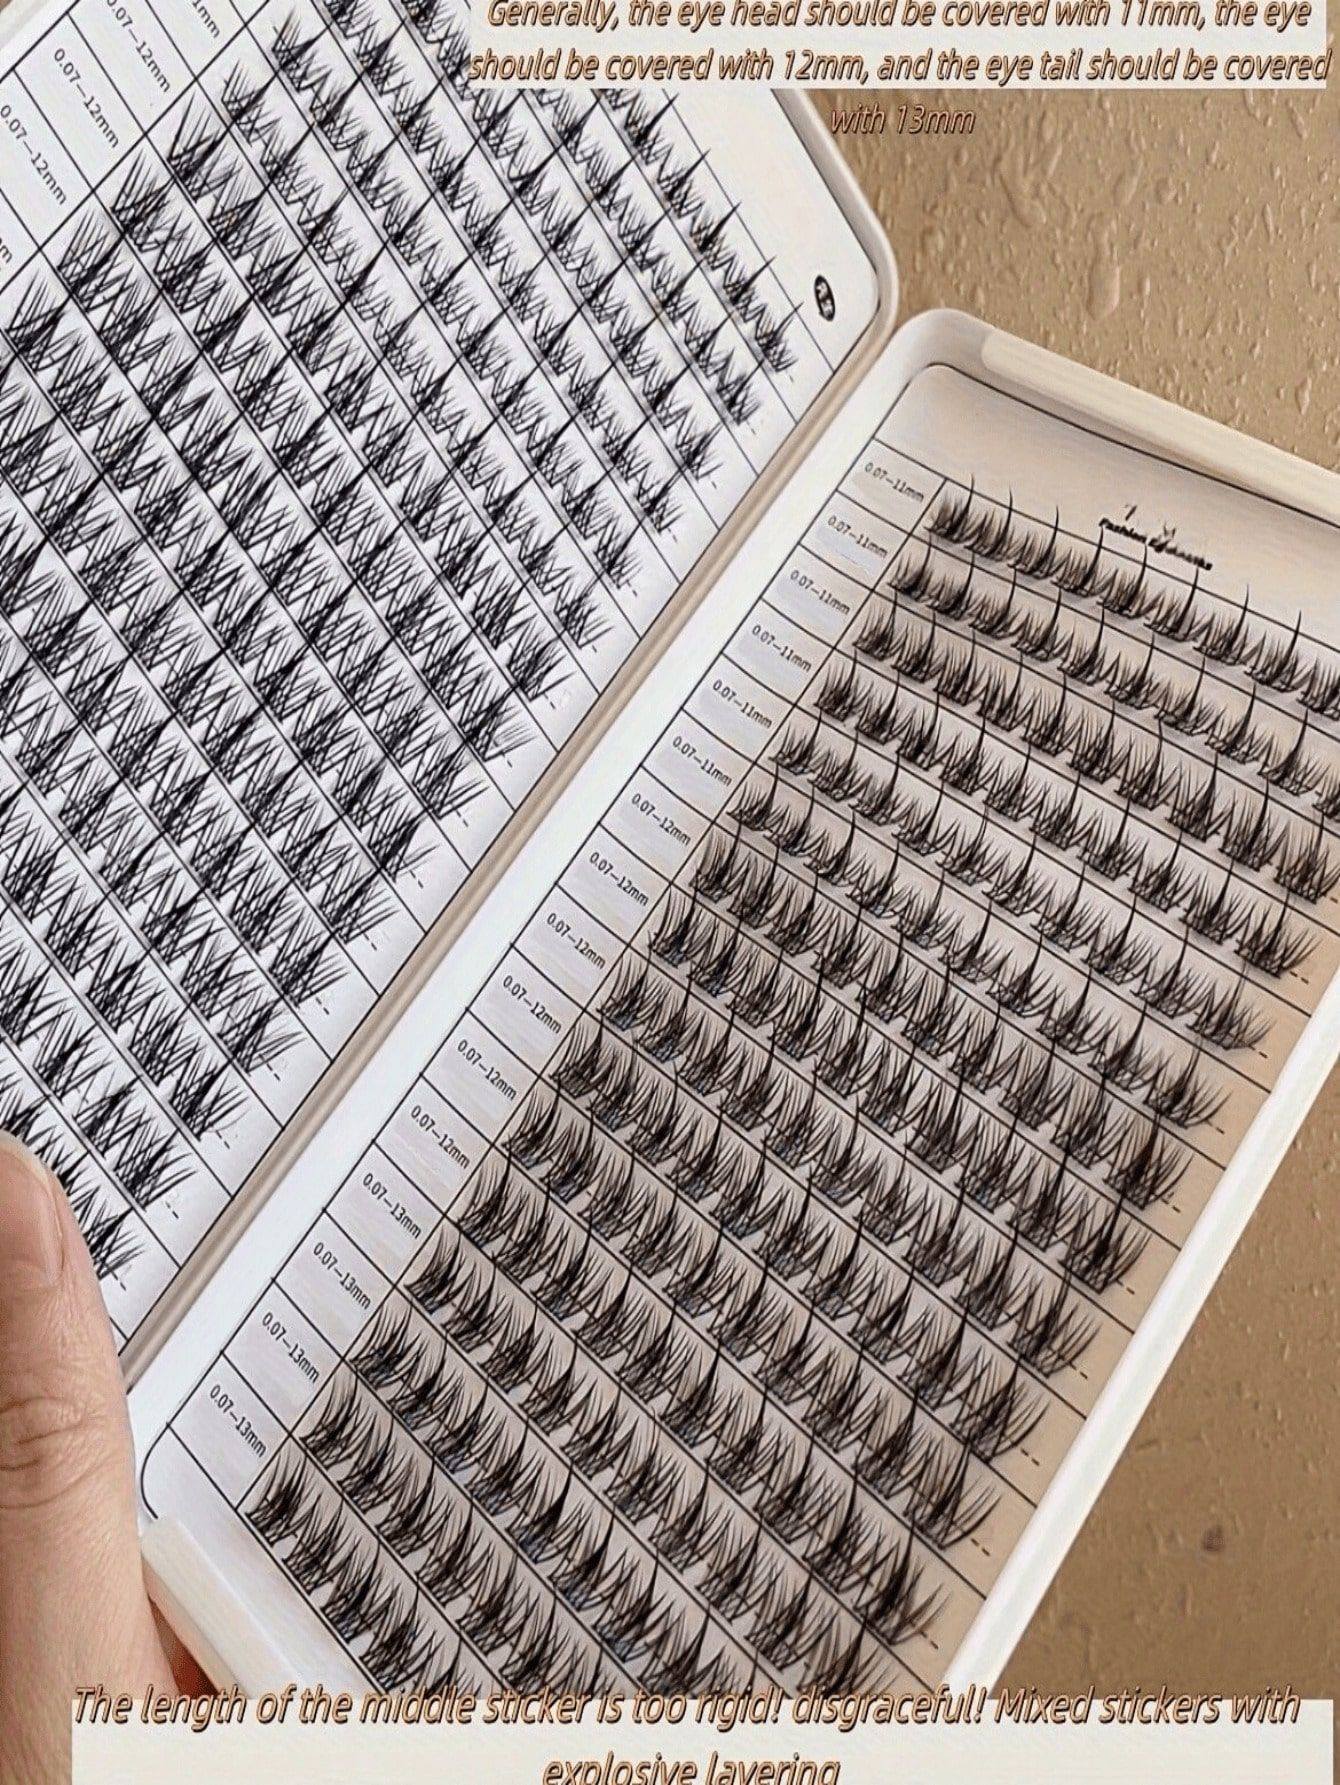 Generally, the eye head should be covered with 11mm, the eye
should be covered with 12mm, and the eye tail should be covered
with 13mm
1mm
0.07-12mm
0.07-12mm
0.07-12mm
0.07-11mm
0.07-11mm
0.07-11mm
0.07-11mm
0.07-11mm
0.07-11mm
0.07-12mm
0.07-12mm
0.07-12mm
0.07-12mm
0.07-12mm
0.07-12mm
0.07-13mm
0.07-13mm
0.07-13mm
0.07-13mm
The length of the middle sticker is too rigid! disgraceful! Mixed stickers with
explosive layering